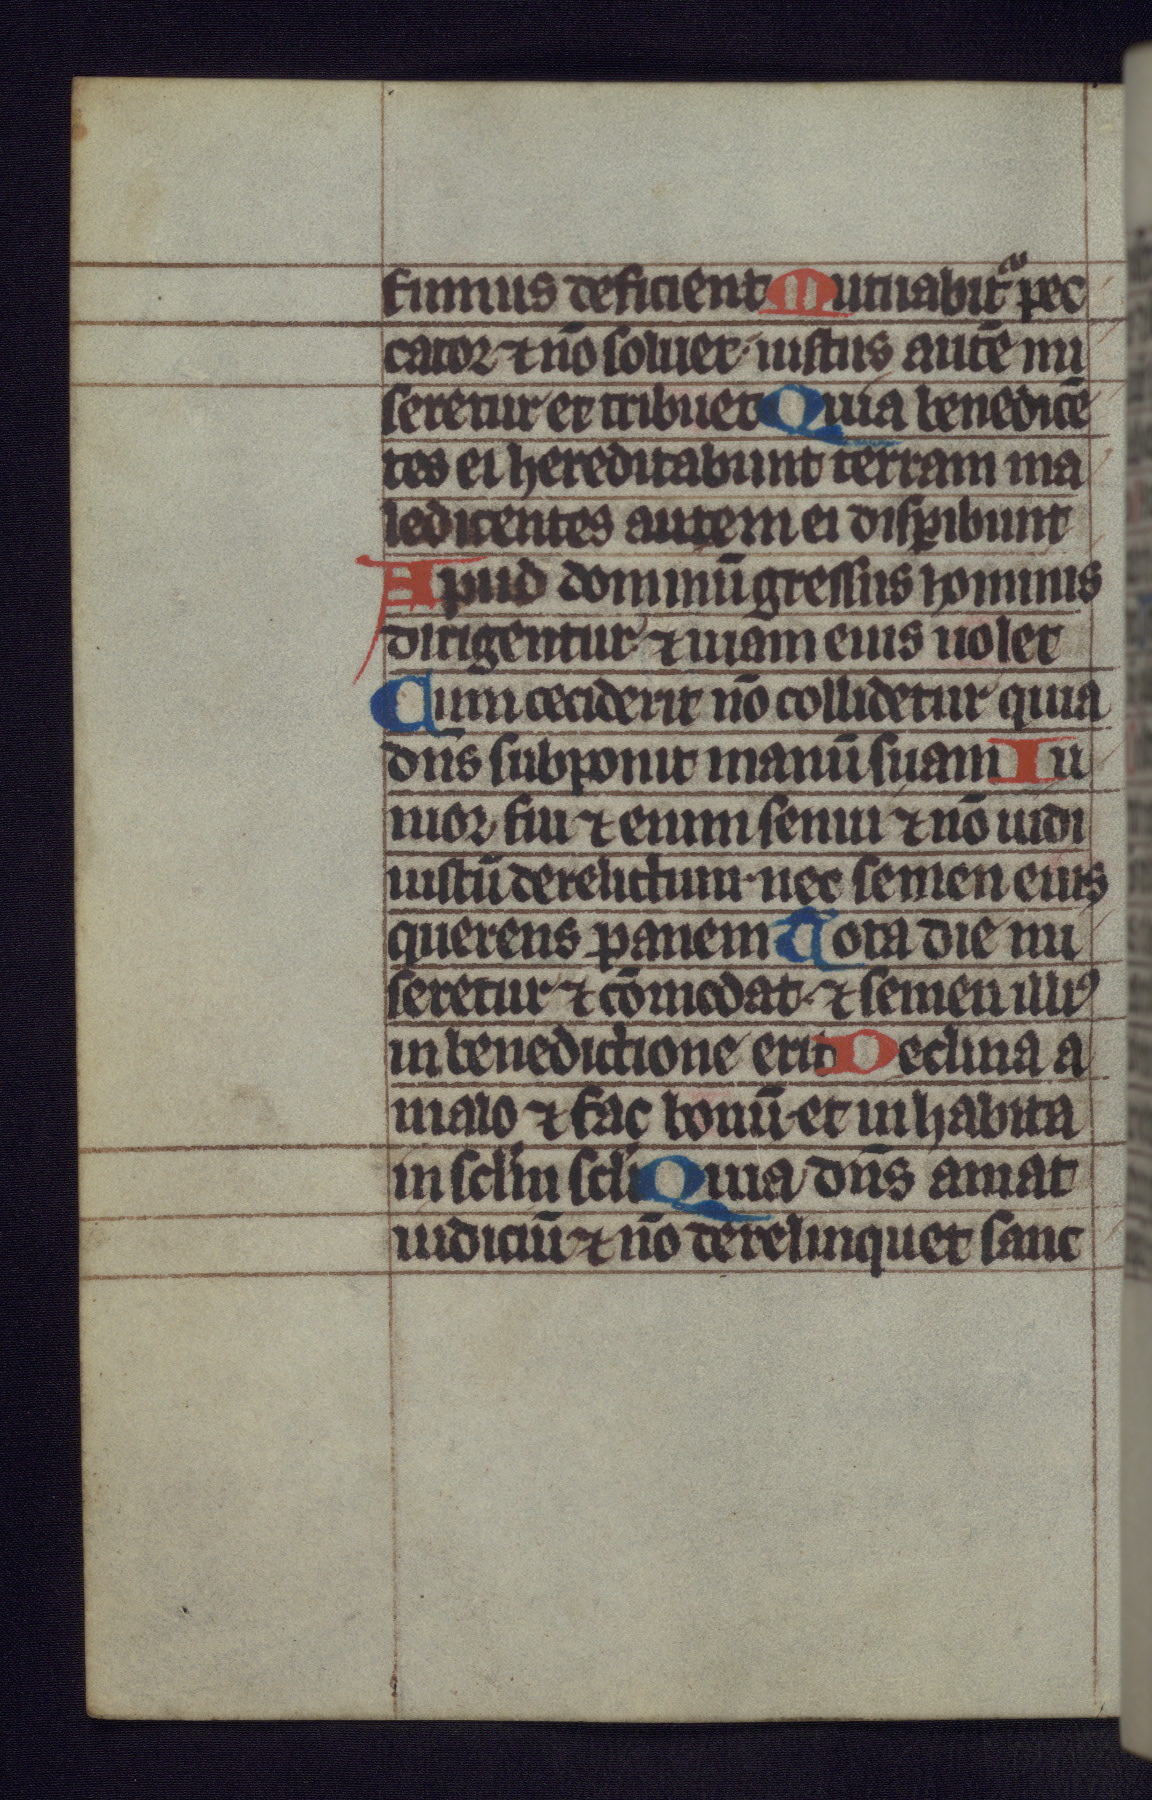 fumus deficient Mutuabit᷑ pec
cator ⁊ nō soluet· iustus autē mi
seretur et tribuet Quia benedicē
tes ei hereditabunt terram ma
ledicentes autem ei disꝑibunt
Apud dominū gressus hominis
dirigentur ⁊ uiam eius uolet
Cum ceciderit nō collidetur quia
dn̄s subponit manū suam Iu
nior fui ⁊ enim senui ⁊ nō uidi
iustū derelictum· nec semen eius
querens panem Tota die mi
seretur ⁊ cōmodat· ⁊ semen illiꝰ
in benedictione erit Declina a
malo ⁊ fac bonū· et inhabita
in sclm̄ scli̅ Quia dn̄s amat
iudiciū ⁊ nō derelinquet sanc